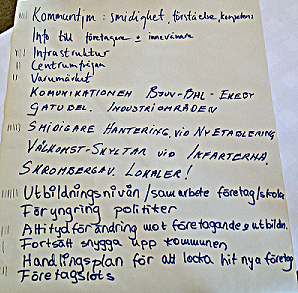 IIII Kommuntjm: smidighet, förståelse, kompetens
Info till företagare o innevånare
IIII Infrastruktur
II Centrumfrågan
II Varumärket
KOMMUNIKATIONEN BJUV-BHL-EKEBY
GATUDEL. INDUSTRIOMRÅDEN
IIIII SMIDIGARE HANTERING VID NYETABLERING
VÄLKOMST-SKYLTAR VID INFARTERNA
SKROMBERGAV. LOKALER!
Utbildningsnivån/samarbete företag/skola
Föryngring politiker
Attitydförändring mot företagande o utbildn.
Fortsätt snygga upp kommunen
Handlingsplan för att locka hit nya företag
Företagslots